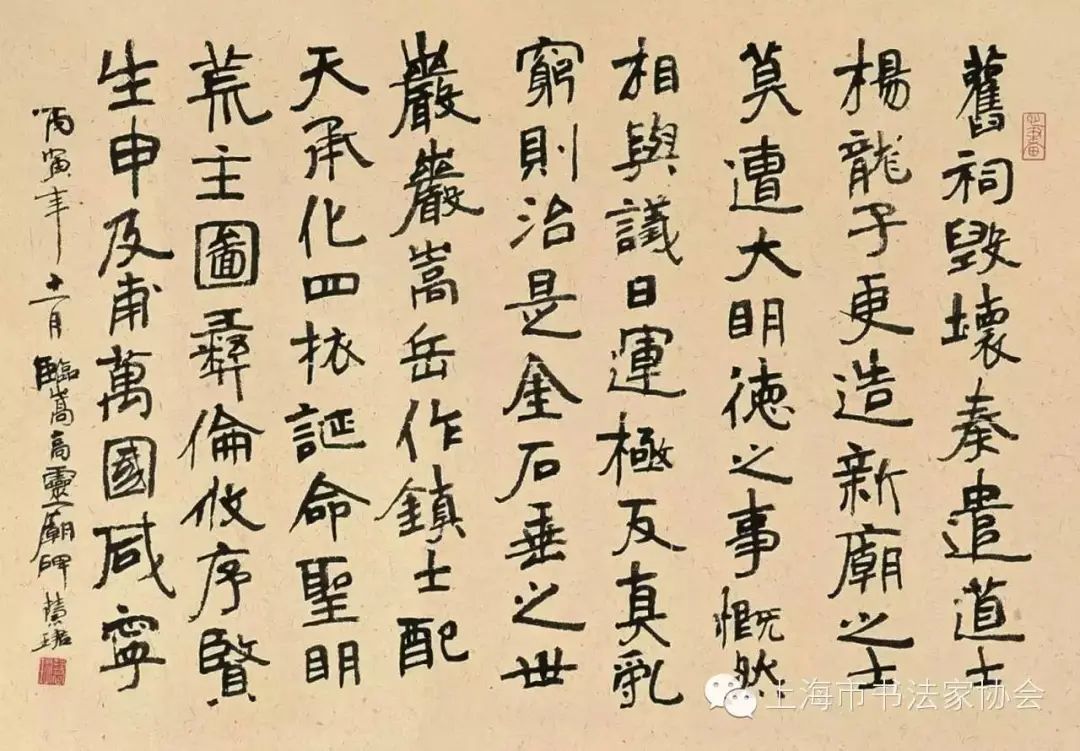 舊祠毀壞奏遣道士
楊龍子更造新廟之士
莫遭大明徳之事慨然
相與議日運極反真乱
窮則治是金石垂之世
巖巖嵩岳作鎮土配
天承化四袨誕命聖明
荒主圖彛倫攸序賢
生申及甫萬國咸寧
丙寅年十一月臨嵩高靈廟碑
上海市书法家协会